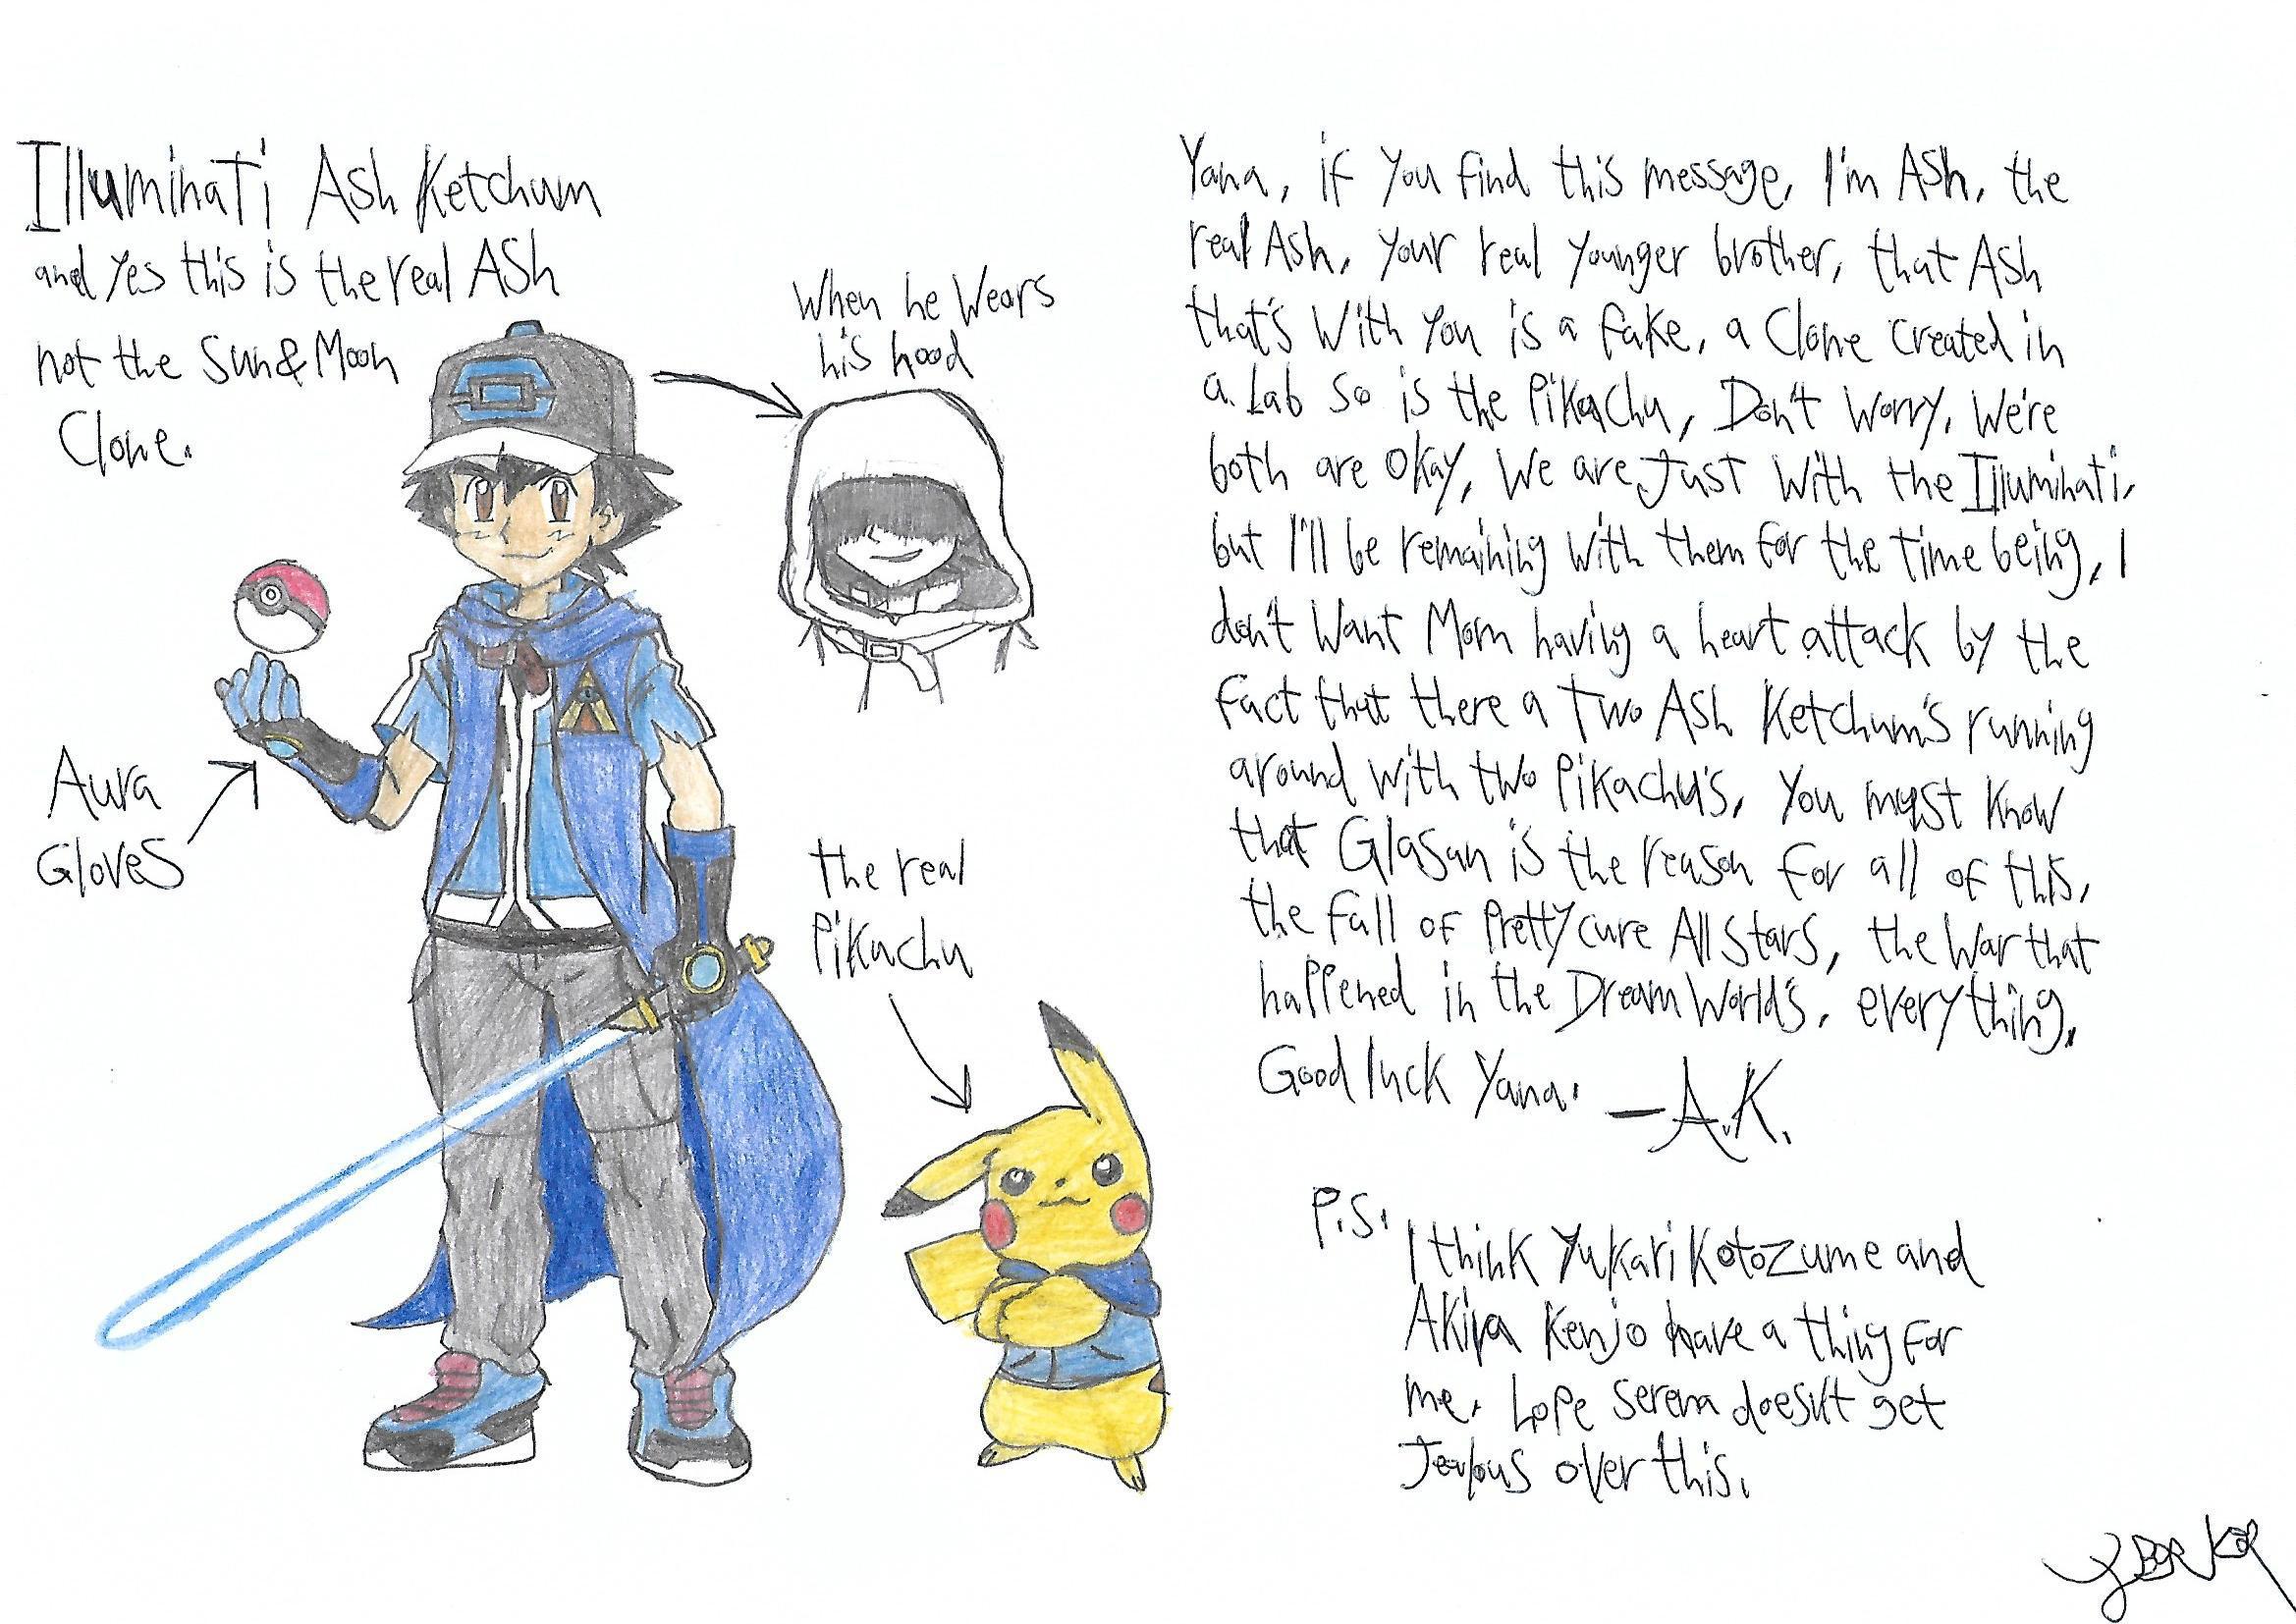 Illuminati Ash Ketchum
and yes this is the real Ash
not the Sun & Moon
Clone.
When he wears
his hood
Aura
Gloves
the real
Pikachu
Yana, if you find this message, I'm Ash, the
real Ash, your real younger brother, that Ash
that's with you is a fake, a Clone created in
a Lab so is the Pikachu, Don't worry, we're
both are okay, we are just with the Illuminati,
but I'll be remaining with them for the time being, I
don't want Mom having a heart attack by the
fact that there a two Ash Ketchum's running
around with two Pikachu's, you must know
that Glasan is the reason for all of this,
the fall of Pretty cure All Stars, the war that
happened in the Dream World's, everything.
Good luck Yana. —A.K.
P.S.
I think Yukari Kotozume and
Akira Kenjo have a thing for
me. Lope Serena doesn't get
Jealous over this.